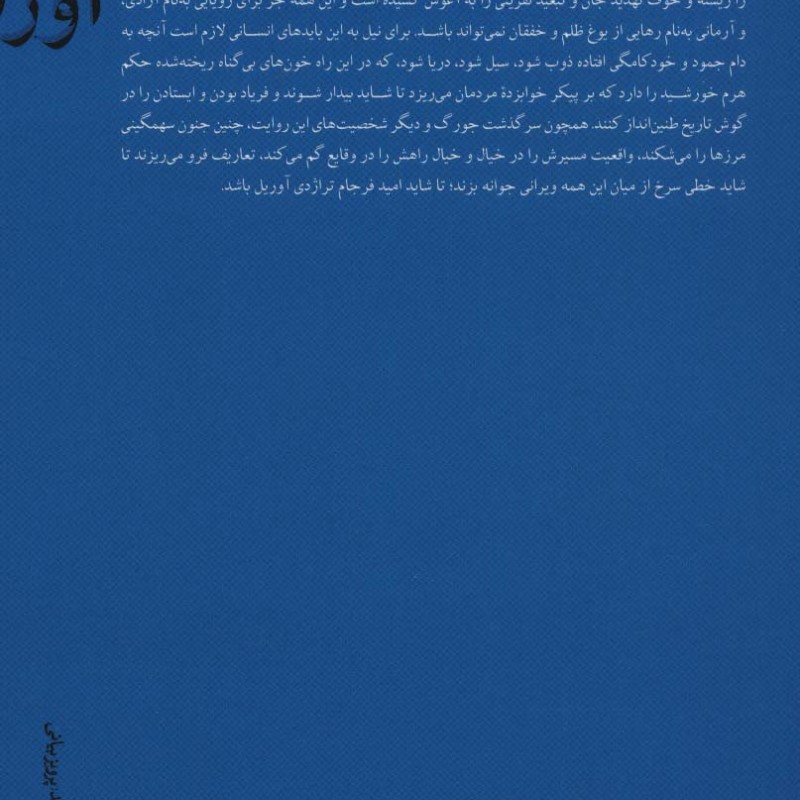 را زیسته و خوف تهدید جان و تبعید نفرینی را به آغوش کشیده است و این همه جز برای رویایی به‌نام آزادی،
و آرمانی به‌نام رهایی از یوغ ظلم و خفقان نمی‌تواند باشد. برای نیل به این بایدهای انسانی لازم است آنچه به
دام جمود و خودکامگی افتاده ذوب شود، سیل شود، دریا شود، که در این راه خون‌های بی‌گناه ریخته‌شده حکم
هرم خورشید را دارد که بر پیکر خوابزدهٔ مردمان می‌ریزد تا شاید بیدار شوند و فریاد بودن و ایستادن را در
گوش تاریخ طنین‌انداز کنند. همچون سرگذشت جورگ و دیگر شخصیت‌های این روایت، چنین جنون سهمگینی
مرزها را می‌شکند، واقعیت مسیرش را در خیال و خیال راهش را در وقایع گم می‌کند، تعاریف فرو می‌ریزند تا
شاید خطی سرخ از میان این همه ویرانی جوانه بزند؛ تا شاید امید فرجام تراژدی آوریل باشد.
پرویز بیانی